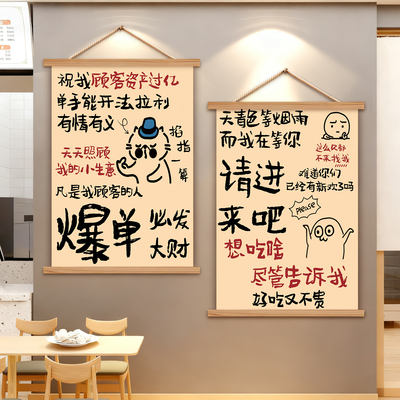 祝我顾客资产过亿
单手能开法拉利
有情有义
掐指一算
天天照顾
我的小生意
凡是我顾客的人
爆单
必发
大财
天青色等烟雨
而我在等你
这么久都
不来找我
请进
来吧
难道你们
已经有新欢了吗
Please
想吃啥
尽管告诉我
好吃又不贵